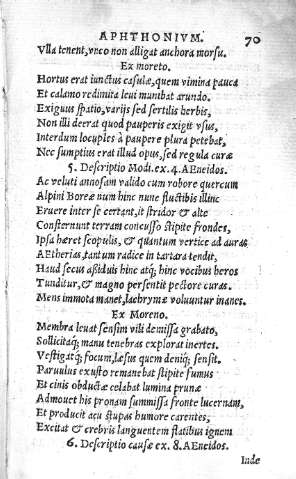 APHTHONIVM. 70
Vlla tenent, vnco non alligat anchora morsu.
Ex moreto.
Hortus erat iunctus casulæ, quem vimina pauca
Et calamo redimita leui munibat arundo.
Exiguus spatio, varijs sed fertilis herbis,
Non illi deerat quod pauperis exigit vsus,
Interdum locuples à paupere plura petebat,
Nec sumptius erat illud opus, sed regula curæ
5. Descriptio Modi. ex. 4. AEneidos.
Ac veluti annosam valido cum robore quercum
Alpini Boreæ num hinc nunc fluctibus illinc
Eruere inter se certant, it stridor & alte
Consternunt terram concusso stipite frondes,
Ipsa hæret scopulis, & quantum vertice ad auras
AEtherias, tantum radice in tartara tendit,
Haud secus aßiduis hinc atq; hinc vocibus heros
Tunditur, & magno persentit pectore curas.
Mens immota manet, lachrymæ voluuntur inanes.
Ex Moreno.
Membra leuat sensim vili demissa grabato,
Sollicitaq; manu tenebras explorat inertes.
Vestigatq; focum, læsus quem deniq; sensit.
Paruulus exusto remanebat stipite fumus
Et cinis obductæ celabat lumina prunæ
Admouet his pronam summissa fronte lucernam,
Et producit acu stupas humore carentes,
Excitat & crebris languentem flatibus ignem
6. Descriptio causæ ex. 8. AEneidos.
Inde